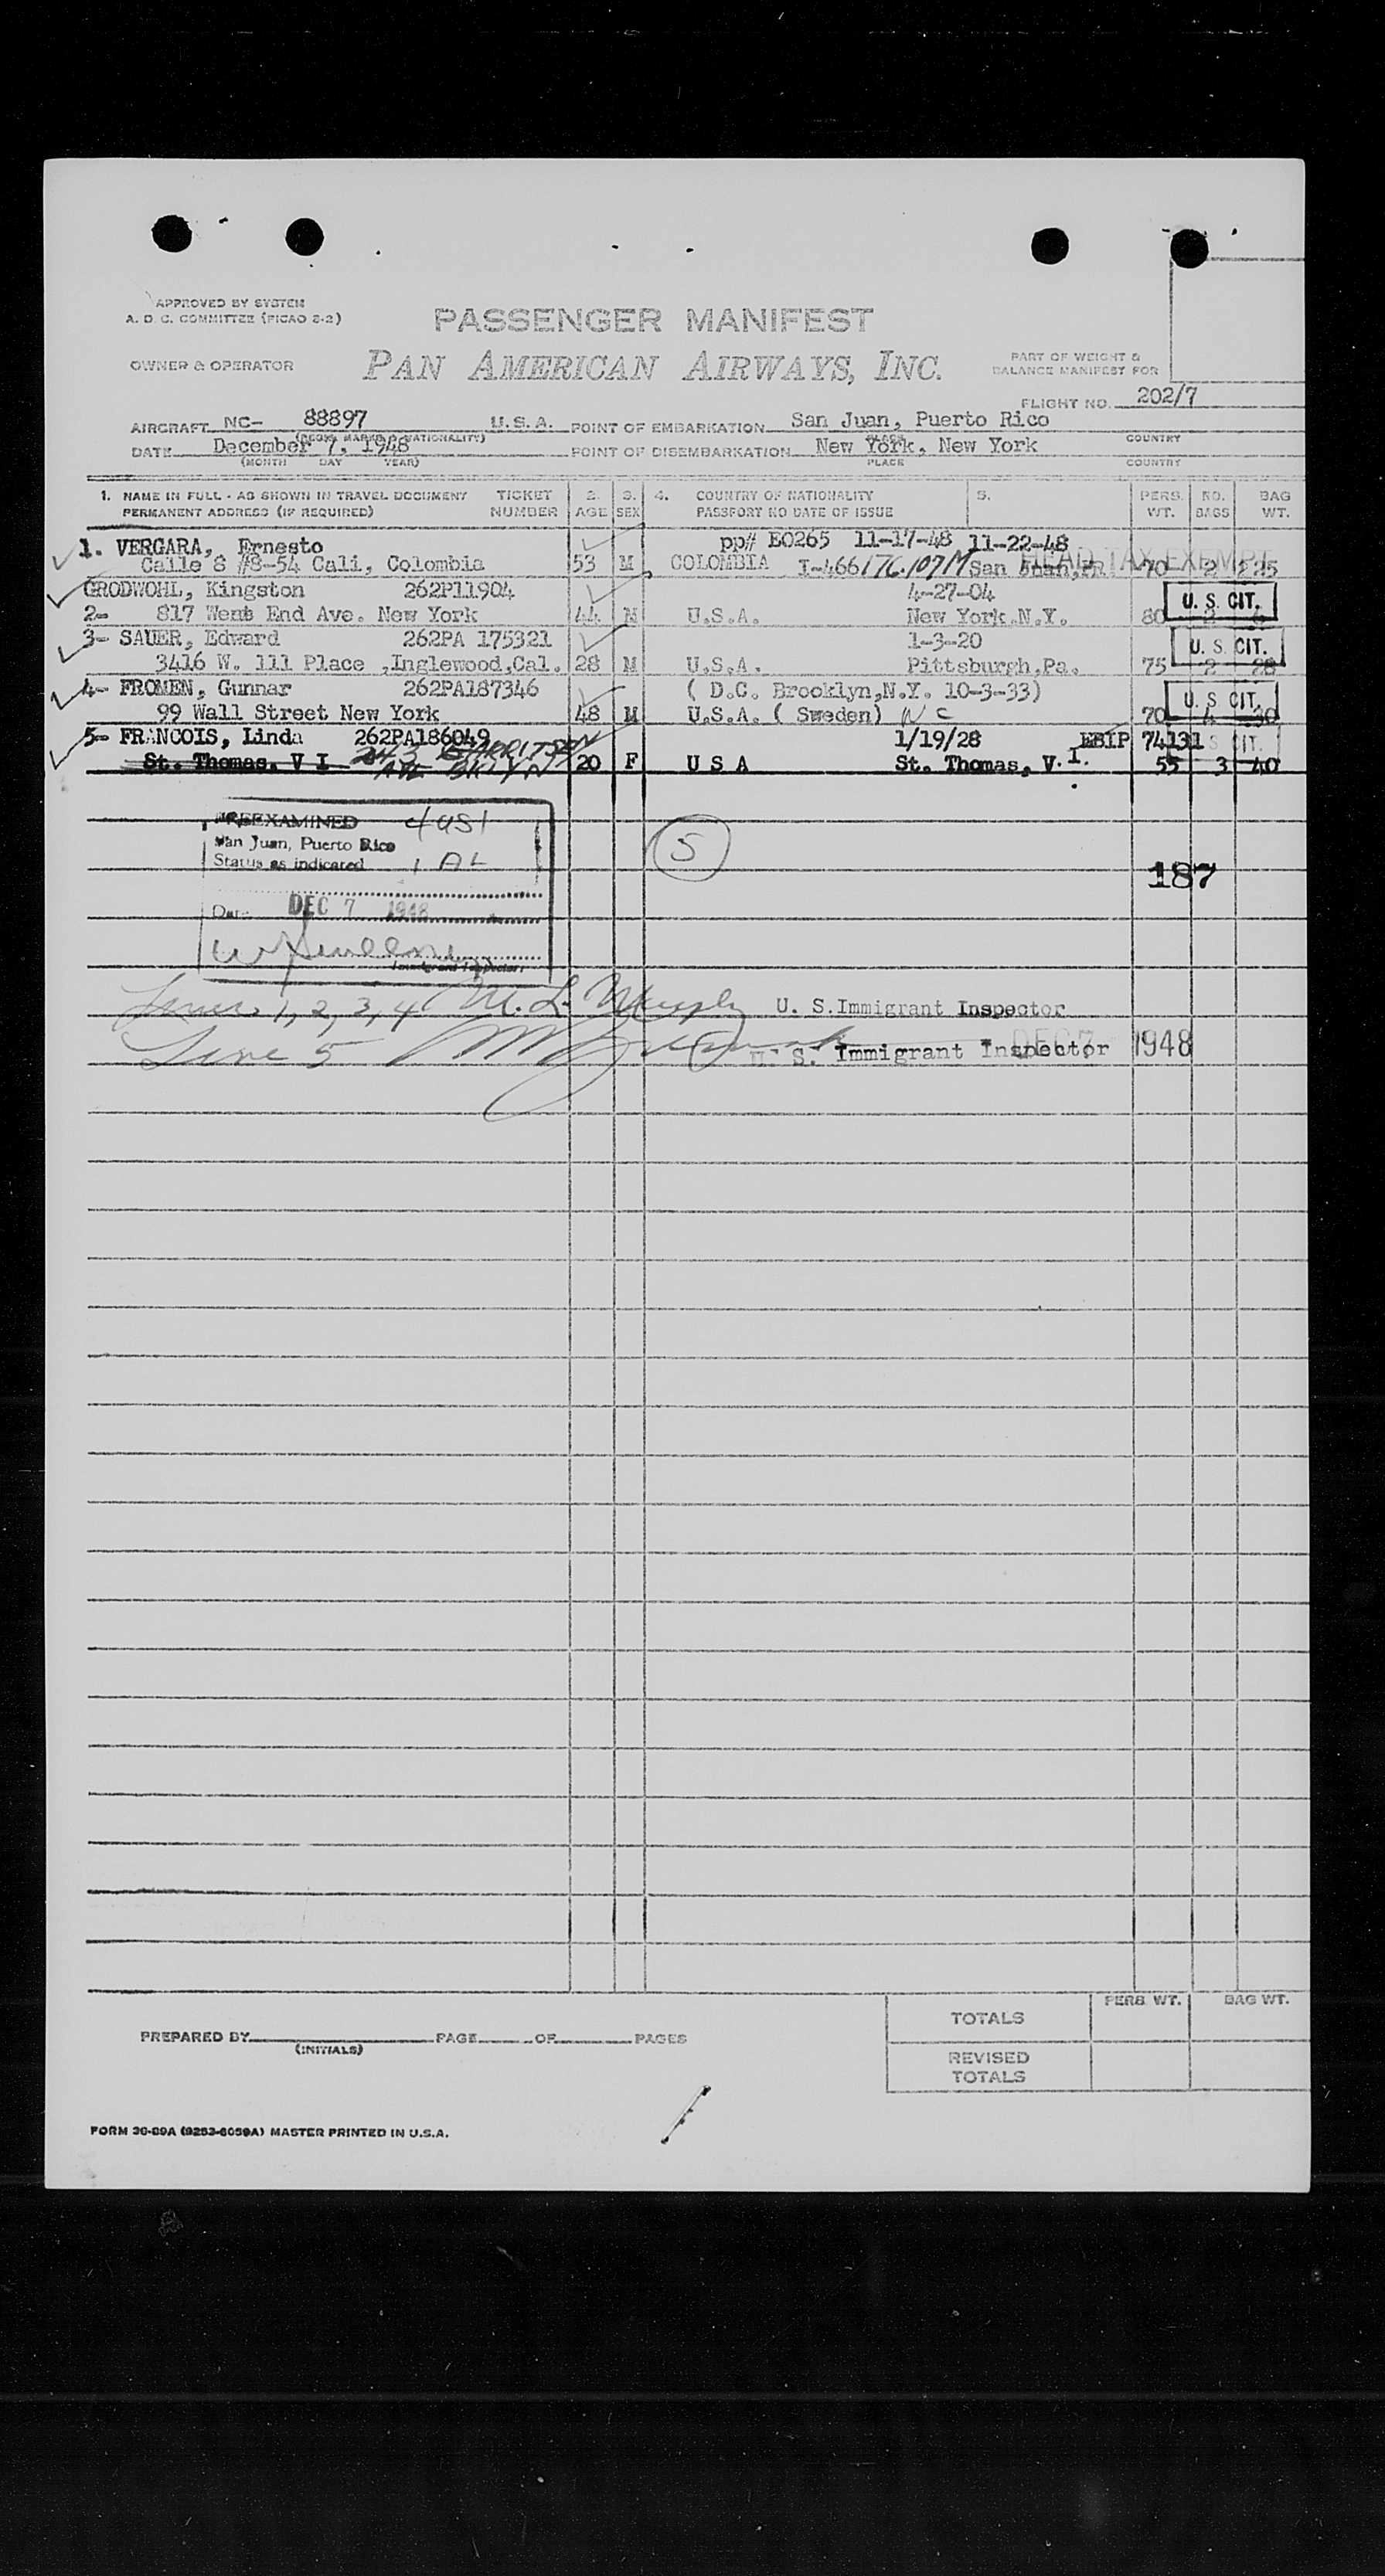 APPROVED BY SYSTEM
A. D. C. COMMITTEE (PICAO 2-2)
PASSENGER MANIFEST
OWNER & OPERATOR
PAN AMERICAN AIRWAYS, INC.
PART OF WEIGHT &
BALANCE MANIFEST FOR
FLIGHT NO. 202/7
AIRCRAFT NC- 88897 U.S.A. POINT OF EMBARKATION San Juan, Puerto Rico
(REGIS. MARKS & NATIONALITY) PLACE COUNTRY
DATE December 7, 1948 POINT OF DISEMBARKATION New York, New York
(MONTH DAY YEAR) PLACE COUNTRY
1. NAME IN FULL - AS SHOWN IN TRAVEL DOCUMENT TICKET 2. 3. 4. COUNTRY OF NATIONALITY 5. PERS. NO. BAG
PERMANENT ADDRESS (IF REQUIRED) NUMBER AGE SEX PASSPORT NO DATE OF ISSUE WT. BAGS WT.
1. VERGARA, Ernesto pp# E0265 11-17-48 11-22-48
HEAD TAX EXEMPT
Calle 8 #8-54 Cali, Colombia 53 M COLOMBIA I-466/76.107M San Juan, 70 2 25
GRODWOHL, Kingston 262P11904 4-27-04 U. S. CIT.
2- 817 West End Ave. New York 44 M U.S.A. New York.N.Y. 80 2
3- SAUER, Edward 262PA 175321 1-3-20 U. S. CIT.
3416 W. 111 Place ,Inglewood,Cal. 28 M U.S.A. Pittsburgh,Pa. 75 2 28
4- FROMEN, Gunnar 262PA187346 ( D.C. Brooklyn,N.Y. 10-3-33) U. S CIT.
99 Wall Street New York 48 M U.S.A. ( Sweden) N C 70 4 30
5- FRANCOIS, Linda 262PA186049 1/19/28 EBIP 74131 S CIT.
St. Thomas. V I AVE BKLYN 20 F U S A St. Thomas, V. I. 55 3 40
PREEXAMINED 4 USI
San Juan, Puerto Rico
Status as indicated 1 AL
5
187
Date DEC 7 1948
Immigrant Inspector
Lines 1, 2, 3, 4 M. L. Murphy U. S. Immigrant Inspector
Line 5 U. S. Immigrant Inspector DEC 7 1948
PERS. WT. BAG WT.
TOTALS
PREPARED BY PAGE OF PAGES
(INITIALS)
REVISED
TOTALS
FORM 30-89A (9253-6059A) MASTER PRINTED IN U.S.A.